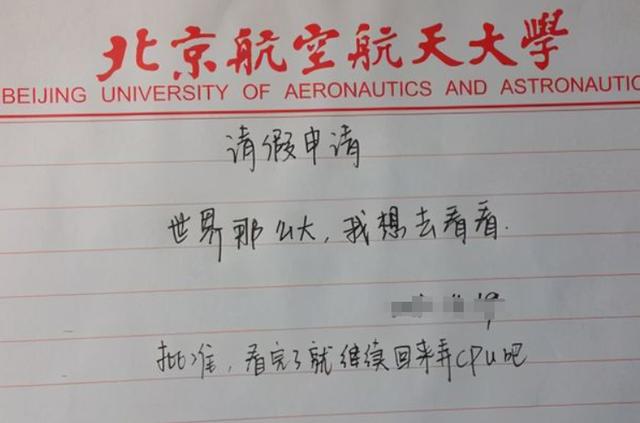 北京航空航天大學
BEIJING UNIVERSITY OF AERONAUTICS AND ASTRONAUTIC
请假申请
世界那么大,我想去看看.
批准,看完了就继续回来弄CPU吧